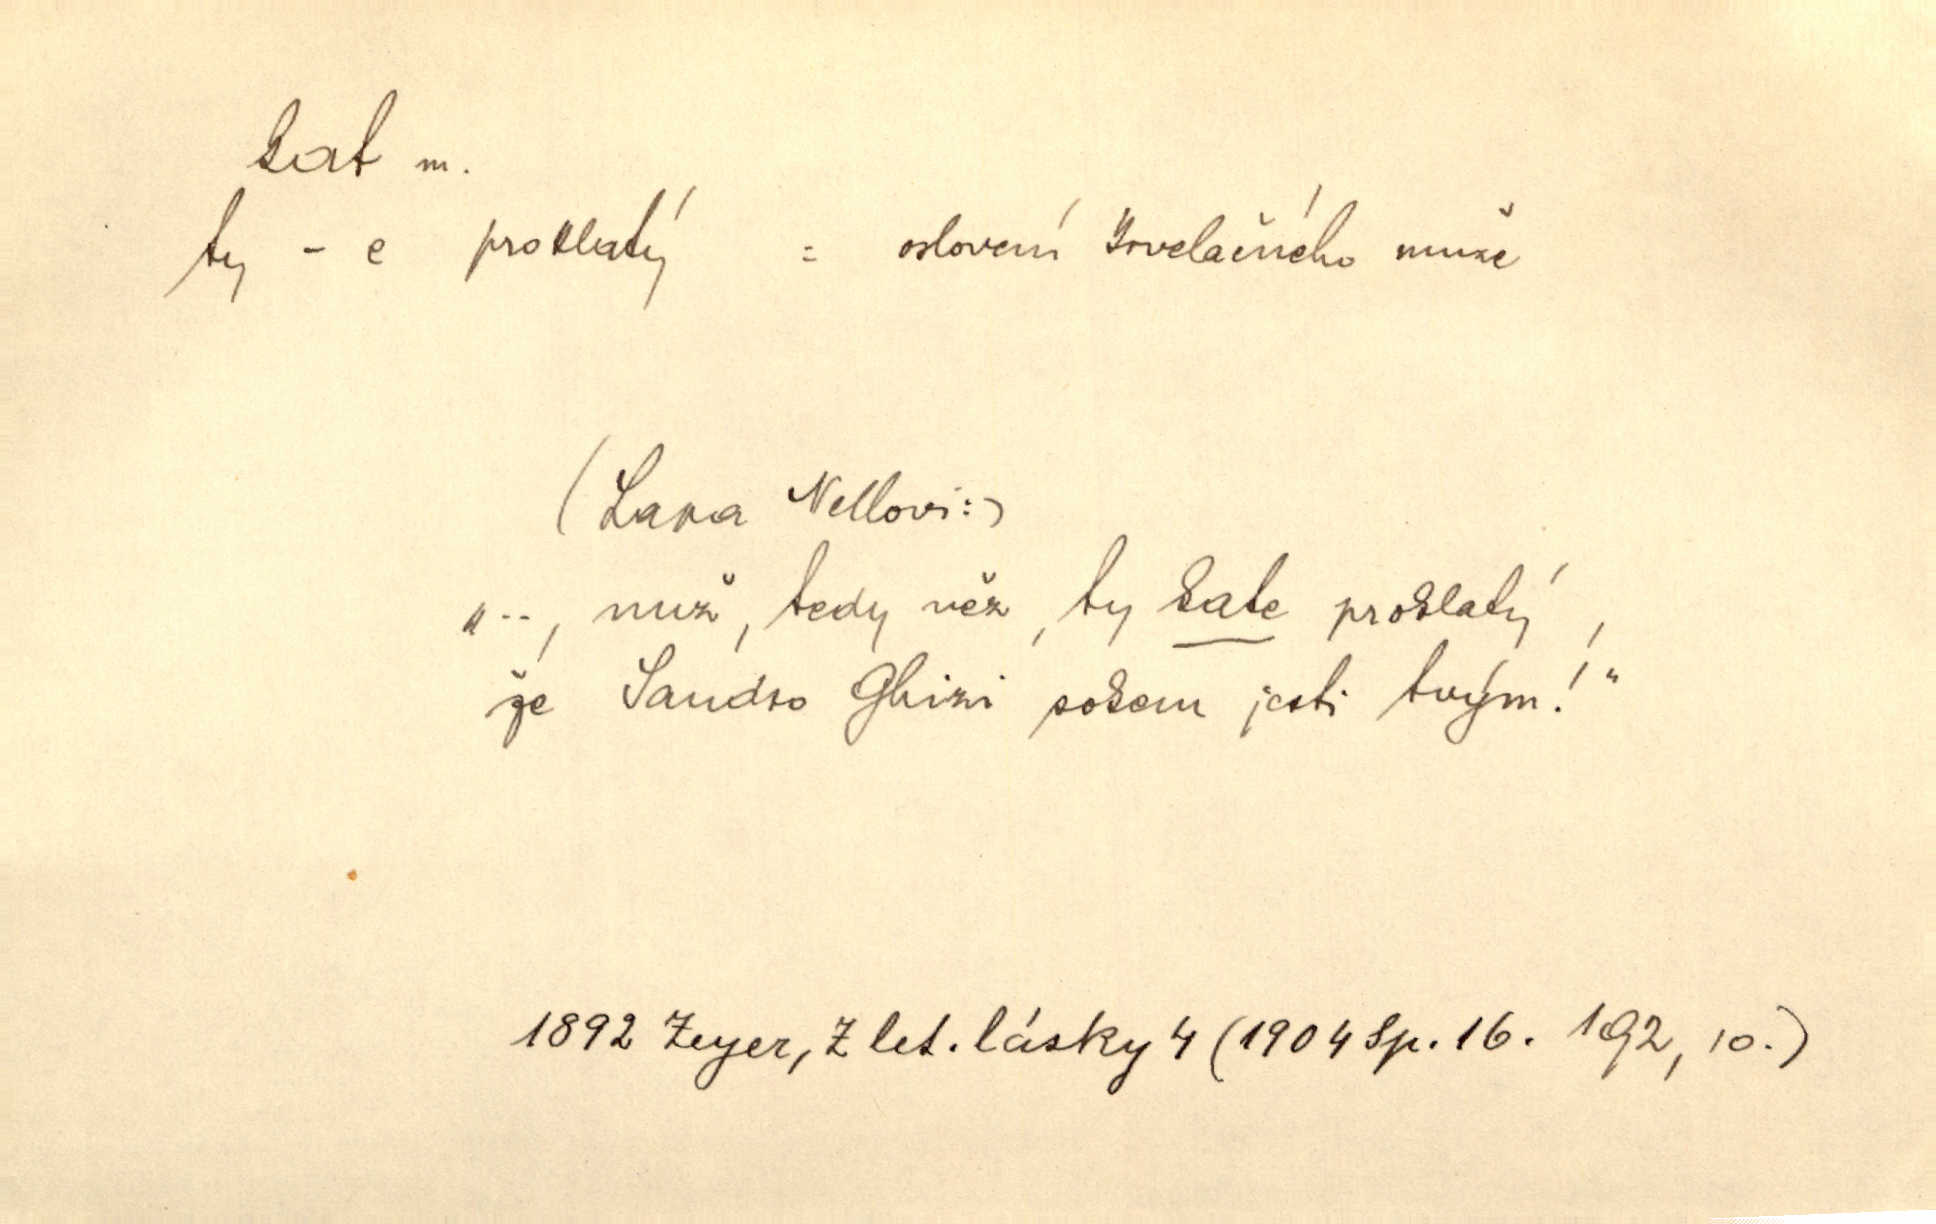 kat m.
ty - e proklatý = oslovení krvelačného muže
(Lapa Nellovi:)
„.., nuž, tedy věz, ty kate proklatý,
že Sandro Ghizi sokem jesti tvým!“
1892 Zeyer, Z let. lásky 4 (1904 Sp. 16. 192, 10.)